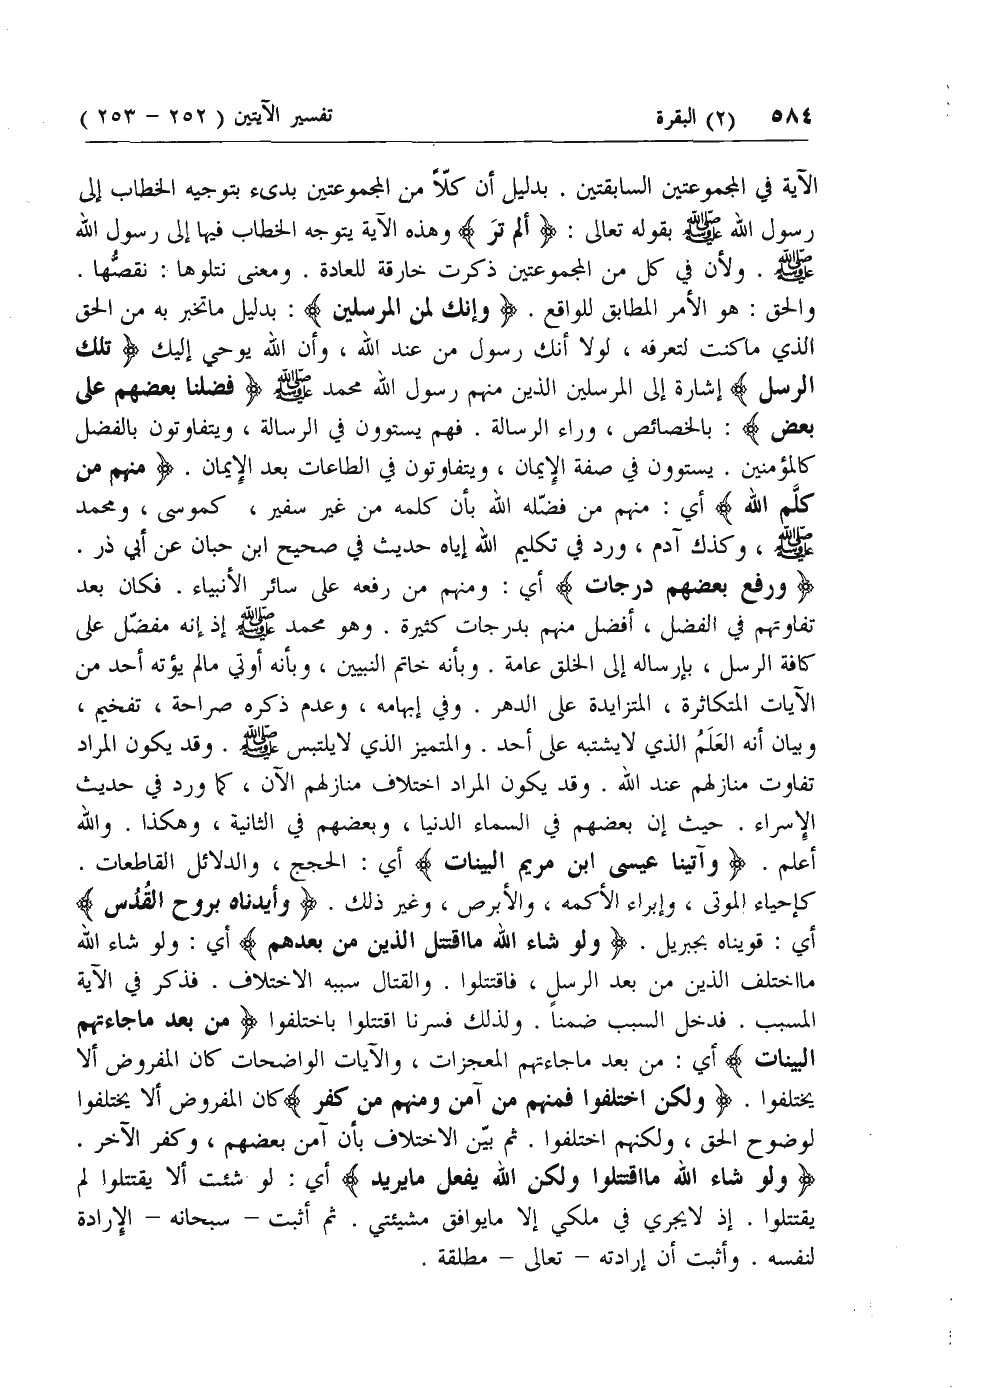 ٥٨٤ (٢) البقرة تفسير الآيتين ( ٢٥٢ – ٢٥٣ )
الآية في المجموعتين السابقتين . بدليل أن كلّاً من المجموعتين بدىء بتوجيه الخطاب إلى
رسول الله ﷺ بقوله تعالى : ﴿ ألم ترَ ﴾ وهذه الآية يتوجه الخطاب فيها إلى رسول الله
ﷺ . ولأن في كل من المجموعتين ذكرت خارقة للعادة . ومعنى نتلوها : نقصُّها .
والحق : هو الأمر المطابق للواقع . ﴿ وإنك لمن المرسلين ﴾ : بدليل ماتخبر به من الحق
الذي ماكنت لتعرفه ، لولا أنك رسول من عند الله ، وأن الله يوحي إليك ﴿ تلك
الرسل ﴾ إشارة إلى المرسلين الذين منهم رسول الله محمد ﷺ ﴿ فضلنا بعضهم على
بعض ﴾ : بالخصائص ، وراء الرسالة . فهم يستوون في الرسالة ، ويتفاوتون بالفضل
كالمؤمنين . يستوون في صفة الإيمان ، ويتفاوتون في الطاعات بعد الإيمان . ﴿ منهم من
كلَّم الله ﴾ أي : منهم من فضّله الله بأن كلمه من غير سفير ، كموسى ، ومحمد
ﷺ ، وكذلك آدم ، ورد في تكليم الله إياه حديث في صحيح ابن حبان عن أبي ذر .
﴿ ورفع بعضهم درجات ﴾ أي : ومنهم من رفعه على سائر الأنبياء . فكان بعد
تفاوتهم في الفضل ، أفضل منهم بدرجات كثيرة . وهو محمد ﷺ إذ إنه مفضّل على
كافة الرسل ، بإرساله إلى الخلق عامة . وبأنه خاتم النبيين ، وبأنه أوتي مالم يؤته أحد من
الآيات المتكاثرة ، المتزايدة على الدهر . وفي إبهامه ، وعدم ذكره صراحة ، تفخيم ،
وبيان أنه العَلَمُ الذي لايشتبه على أحد . والمتميز الذي لايلتبس ﷺ . وقد يكون المراد
تفاوت منازلهم عند الله . وقد يكون المراد اختلاف منازلهم الآن ، كما ورد في حديث
الإسراء . حيث إن بعضهم في السماء الدنيا ، وبعضهم في الثانية ، وهكذا . والله
أعلم . ﴿ وآتينا عيسى ابن مريم البينات ﴾ أي : الحجج ، والدلائل القاطعات .
كإحياء الموتى ، وإبراء الأكمه ، والأبرص ، وغير ذلك . ﴿ وأيدناه بروح القُدُس ﴾
أي : قويناه بجبريل . ﴿ ولو شاء الله مااقتتل الذين من بعدهم ﴾ أي : ولو شاء الله
مااختلف الذين من بعد الرسل ، فاقتتلوا . والقتال سببه الاختلاف . فذكر في الآية
المسبب . فدخل السبب ضمناً . ولذلك فسرنا اقتتلوا باختلفوا ﴿ من بعد ماجاءتهم
البينات ﴾ أي : من بعد ماجاءتهم المعجزات ، والآيات الواضحات كان المفروض ألا
يختلفوا . ﴿ ولكن اختلفوا فمنهم من آمن ومنهم من كفر ﴾كان المفروض ألا يختلفوا
لوضوح الحق ، ولكنهم اختلفوا . ثم بيّن الاختلاف بأن آمن بعضهم ، وكفر الآخر .
﴿ ولو شاء الله مااقتتلوا ولكن الله يفعل مايريد ﴾ أي : لو شئت ألا يقتتلوا لم
يقتتلوا . إذ لايجري في ملكي إلا مايوافق مشيئتي . ثم أثبت – سبحانه – الإرادة
لنفسه . وأثبت أن إرادته – تعالى – مطلقة .